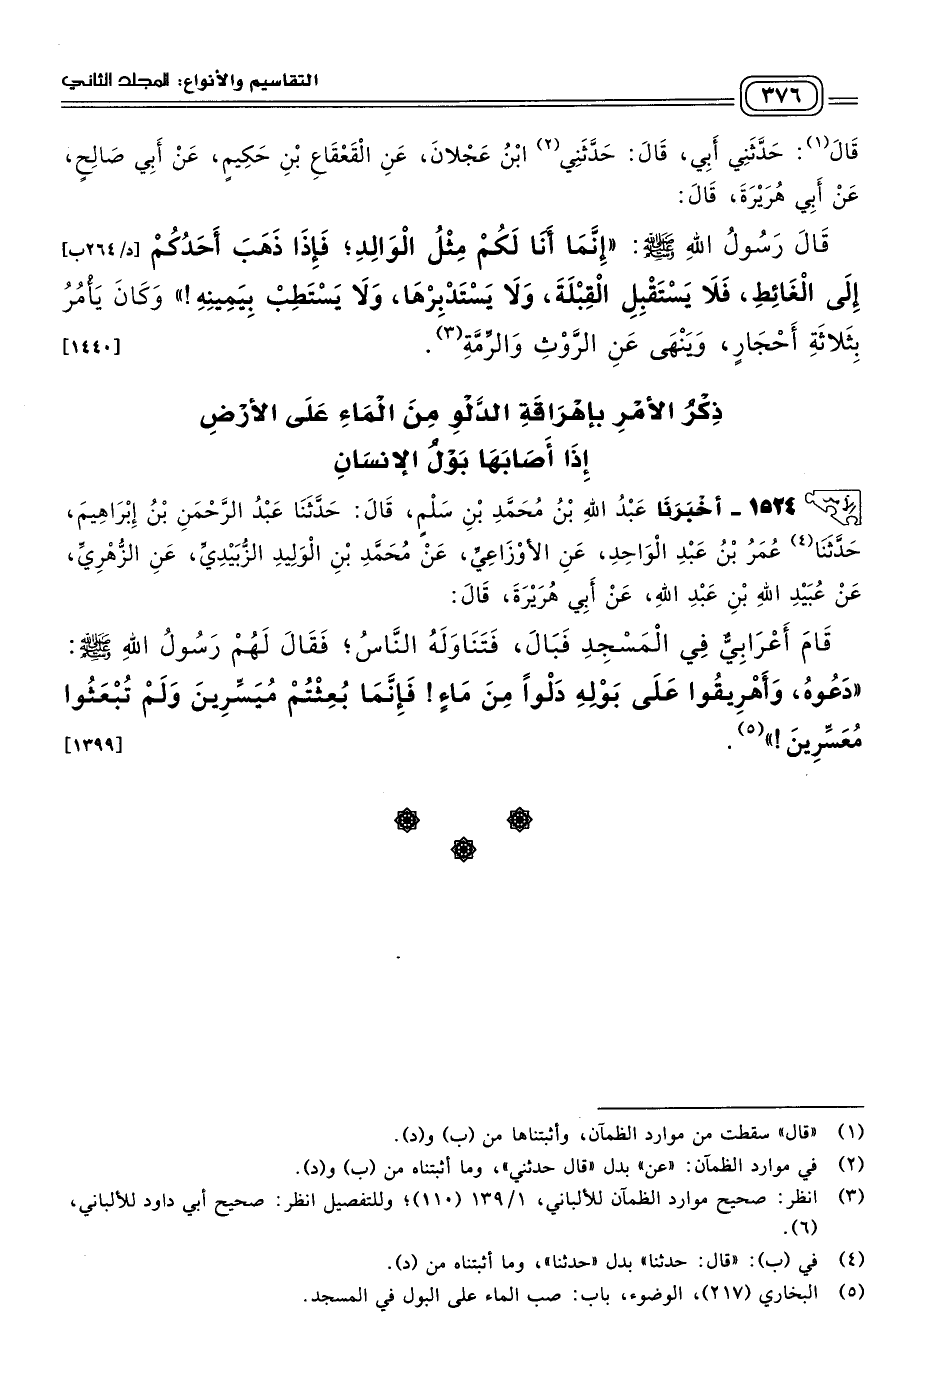 ٣٧٦
التقاسيم والأنواع: المجلد الثاني
قَالَ(١): حَدَّثَنِي أَبِي، قَالَ: حَدَّثَنِي(٢) ابْنُ عَجْلَانَ، عَنِ الْقَعْقَاعِ بْنِ حَكِيمٍ، عَنْ أَبِي صَالِحٍ،
عَنْ أَبِي هُرَيْرَةَ، قَالَ:
قَالَ رَسُولُ اللهِ ﷺ: «إِنَّمَا أَنَا لَكُمْ مِثْلُ الْوَالِدِ؛ فَإِذَا ذَهَبَ أَحَدُكُمْ [د/٢٦٤ب]
إِلَى الْغَائِطِ، فَلَا يَسْتَقْبِلِ الْقِبْلَةَ، وَلَا يَسْتَدْبِرْهَا، وَلَا يَسْتَطِبْ بِيَمِينِهِ!» وَكَانَ يَأْمُرُ
بِثَلَاثَةِ أَحْجَارٍ، وَيَنْهَى عَنِ الرَّوْثِ وَالرِّمَّةِ(٣). [١٤٤٠]
ذِكْرُ الأَمْرِ بِإِهْرَاقَةِ الدَّلْوِ مِنَ الْمَاءِ عَلَى الأَرْضِ
إِذَا أَصَابَهَا بَوْلُ الإِنْسَانِ
١٥٢٤ - أَخْبَرَنَا عَبْدُ اللهِ بْنُ مُحَمَّدِ بْنِ سَلْمٍ، قَالَ: حَدَّثَنَا عَبْدُ الرَّحْمَنِ بْنُ إِبْرَاهِيمَ،
حَدَّثَنَا(٤) عُمَرُ بْنُ عَبْدِ الْوَاحِدِ، عَنِ الأَوْزَاعِيِّ، عَنْ مُحَمَّدِ بْنِ الْوَلِيدِ الزُّبَيْدِيِّ، عَنِ الزُّهْرِيِّ،
عَنْ عُبَيْدِ اللهِ بْنِ عَبْدِ اللهِ، عَنْ أَبِي هُرَيْرَةَ، قَالَ:
قَامَ أَعْرَابِيٌّ فِي الْمَسْجِدِ فَبَالَ، فَتَنَاوَلَهُ النَّاسُ؛ فَقَالَ لَهُمْ رَسُولُ اللهِ ﷺ:
«دَعُوهُ، وَأَهْرِيقُوا عَلَى بَوْلِهِ دَلْواً مِنَ مَاءٍ! فَإِنَّمَا بُعِثْتُمْ مُيَسِّرِينَ وَلَمْ تُبْعَثُوا
مُعَسِّرِينَ!»(٥). [١٣٩٩]
(١) «قال» سقطت من موارد الظمآن، وأثبتناها من (ب) و(د).
(٢) في موارد الظمآن: «عن» بدل «قال حدثني»، وما أثبتناه من (ب) و(د).
(٣) انظر: صحيح موارد الظمآن للألباني، ١٣٩/١ (١١٠)؛ وللتفصيل انظر: صحيح أبي داود للألباني،
(٦).
(٤) في (ب): «قال: حدثنا» بدل «حدثنا»، وما أثبتناه من (د).
(٥) البخاري (٢١٧)، الوضوء، باب: صب الماء على البول في المسجد.